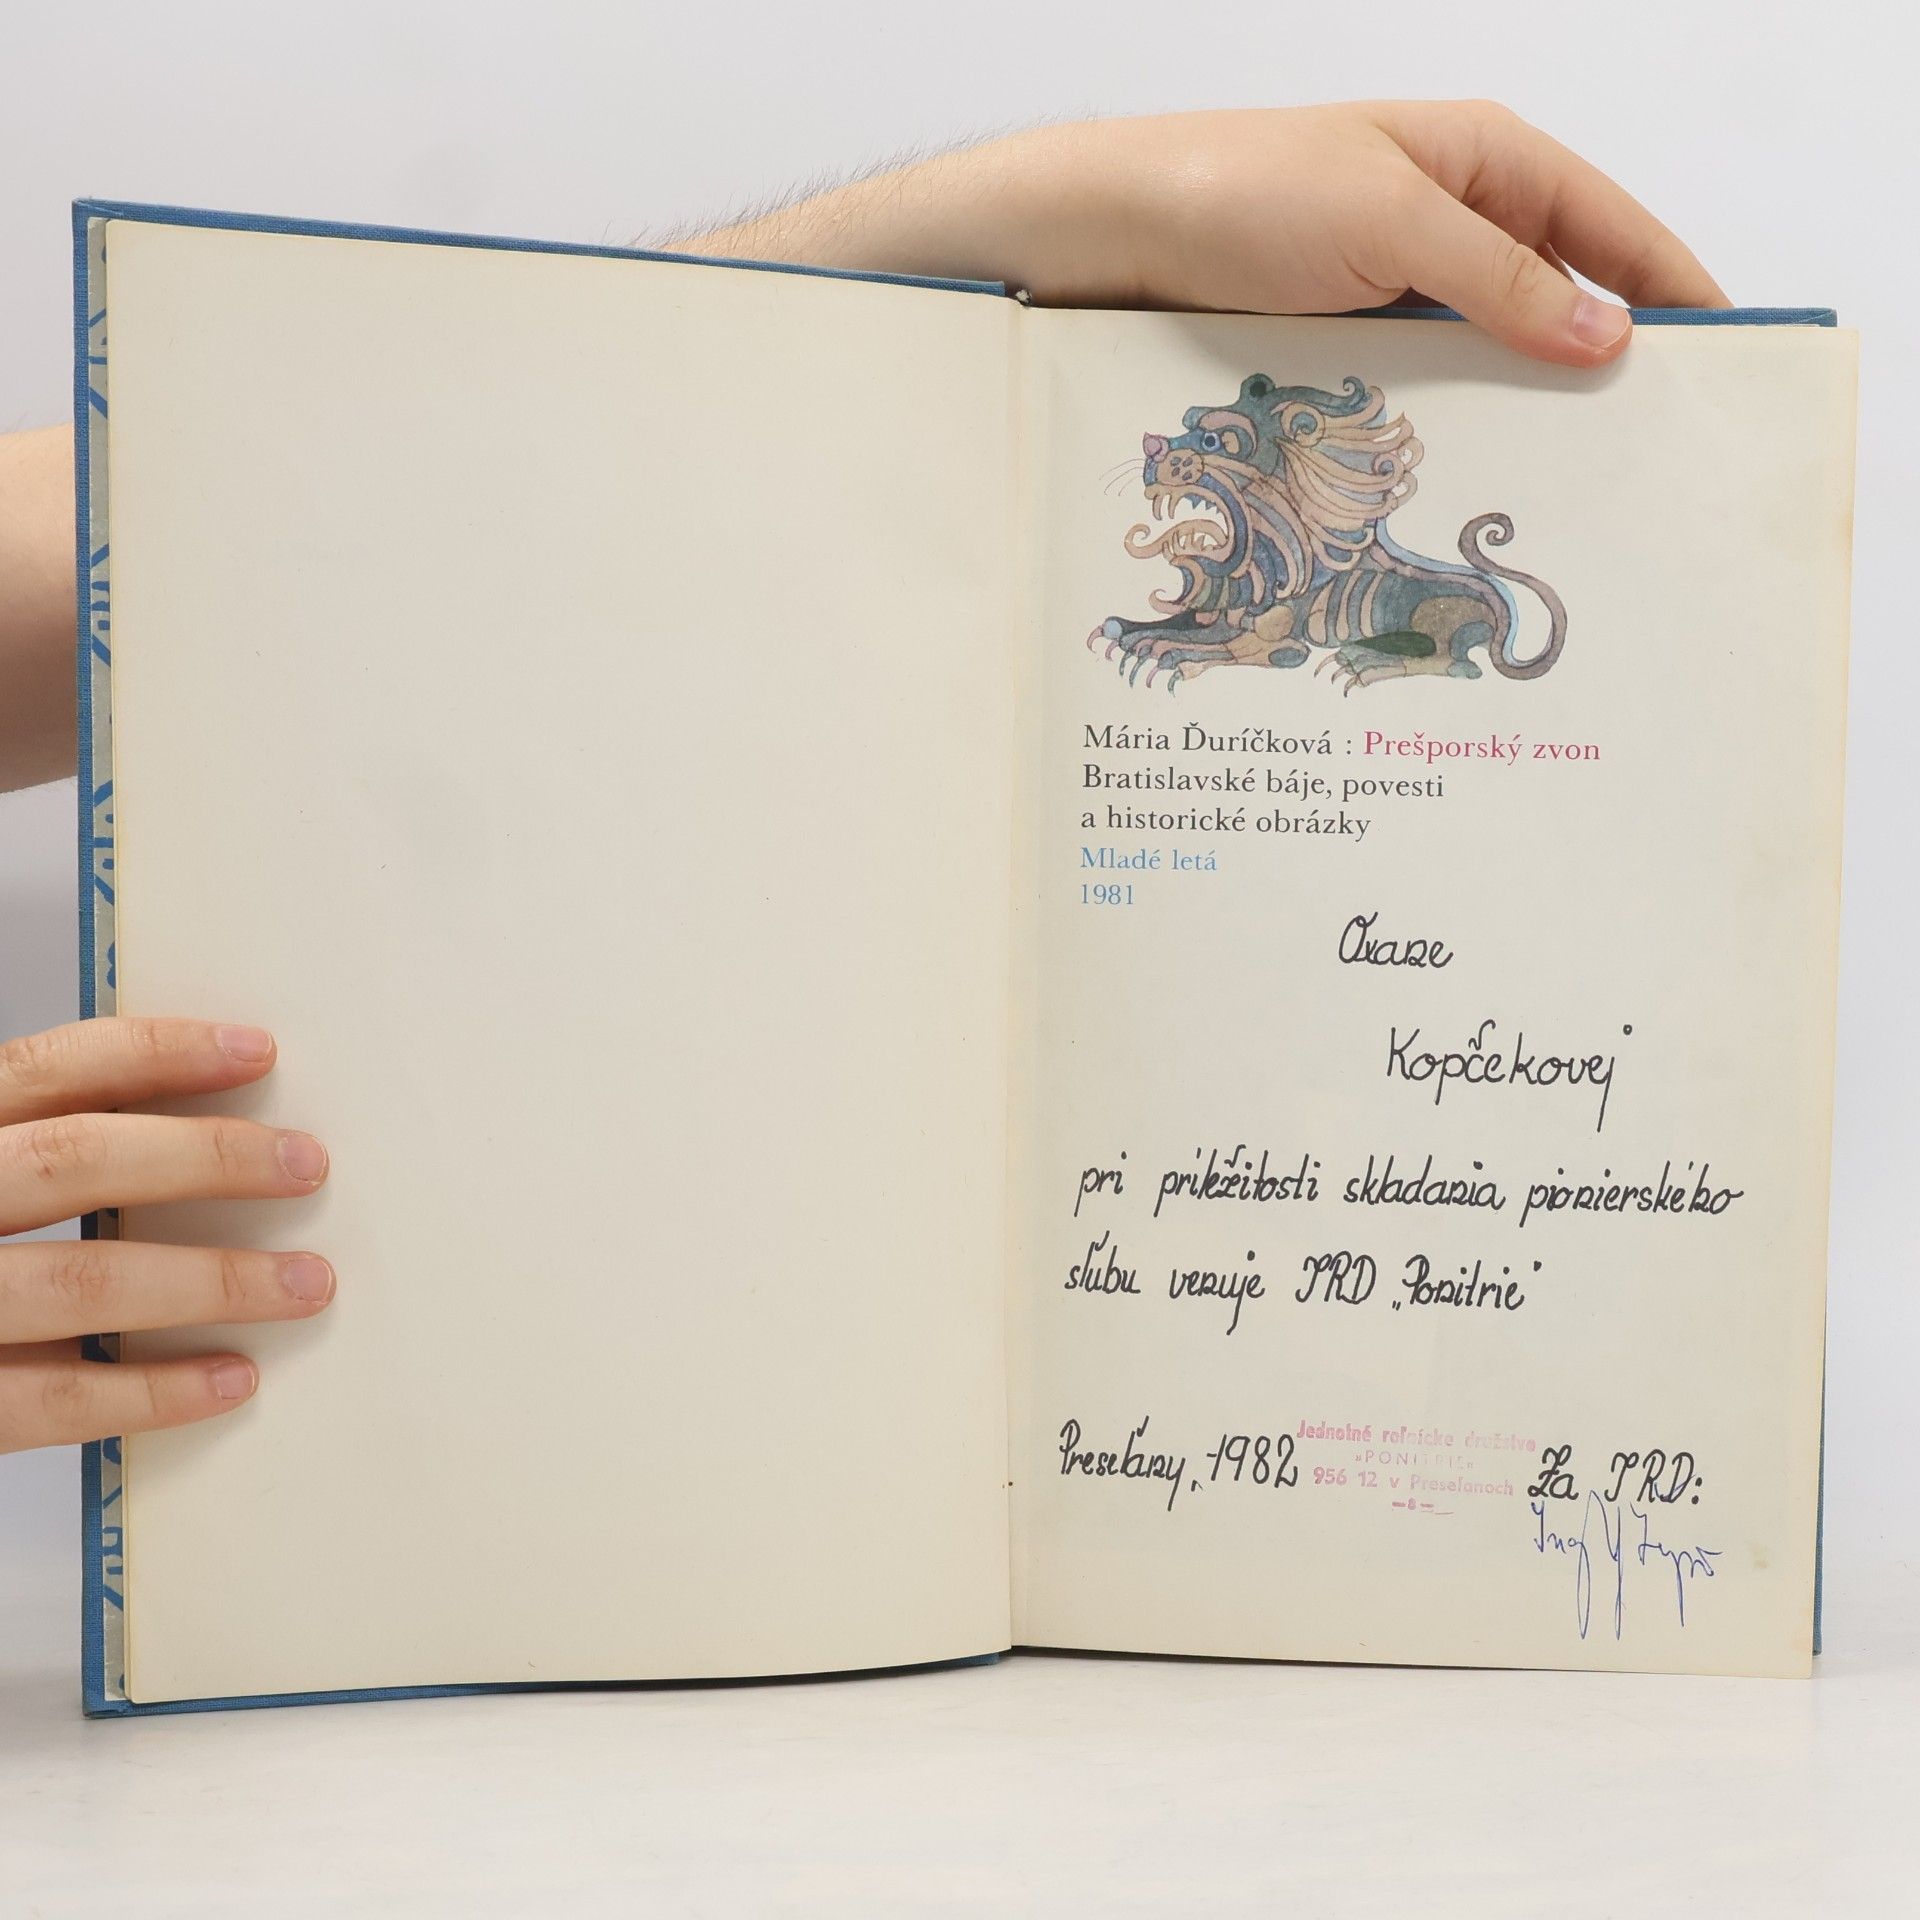 Mária Ďuríčková : Prešporský zvon
Bratislavské báje, povesti
a historické obrázky
Mladé letá
1981
Oxane
Kopčekovej
pri príležitosti skladania pionierského
sľubu venuje JRD „Ponitrie"
Preseľany, 1982
Jednotné roľnícke družstvo
»PONITRIE«
956 12 v Preseľanoch
—8—
Za JRD:
Ing